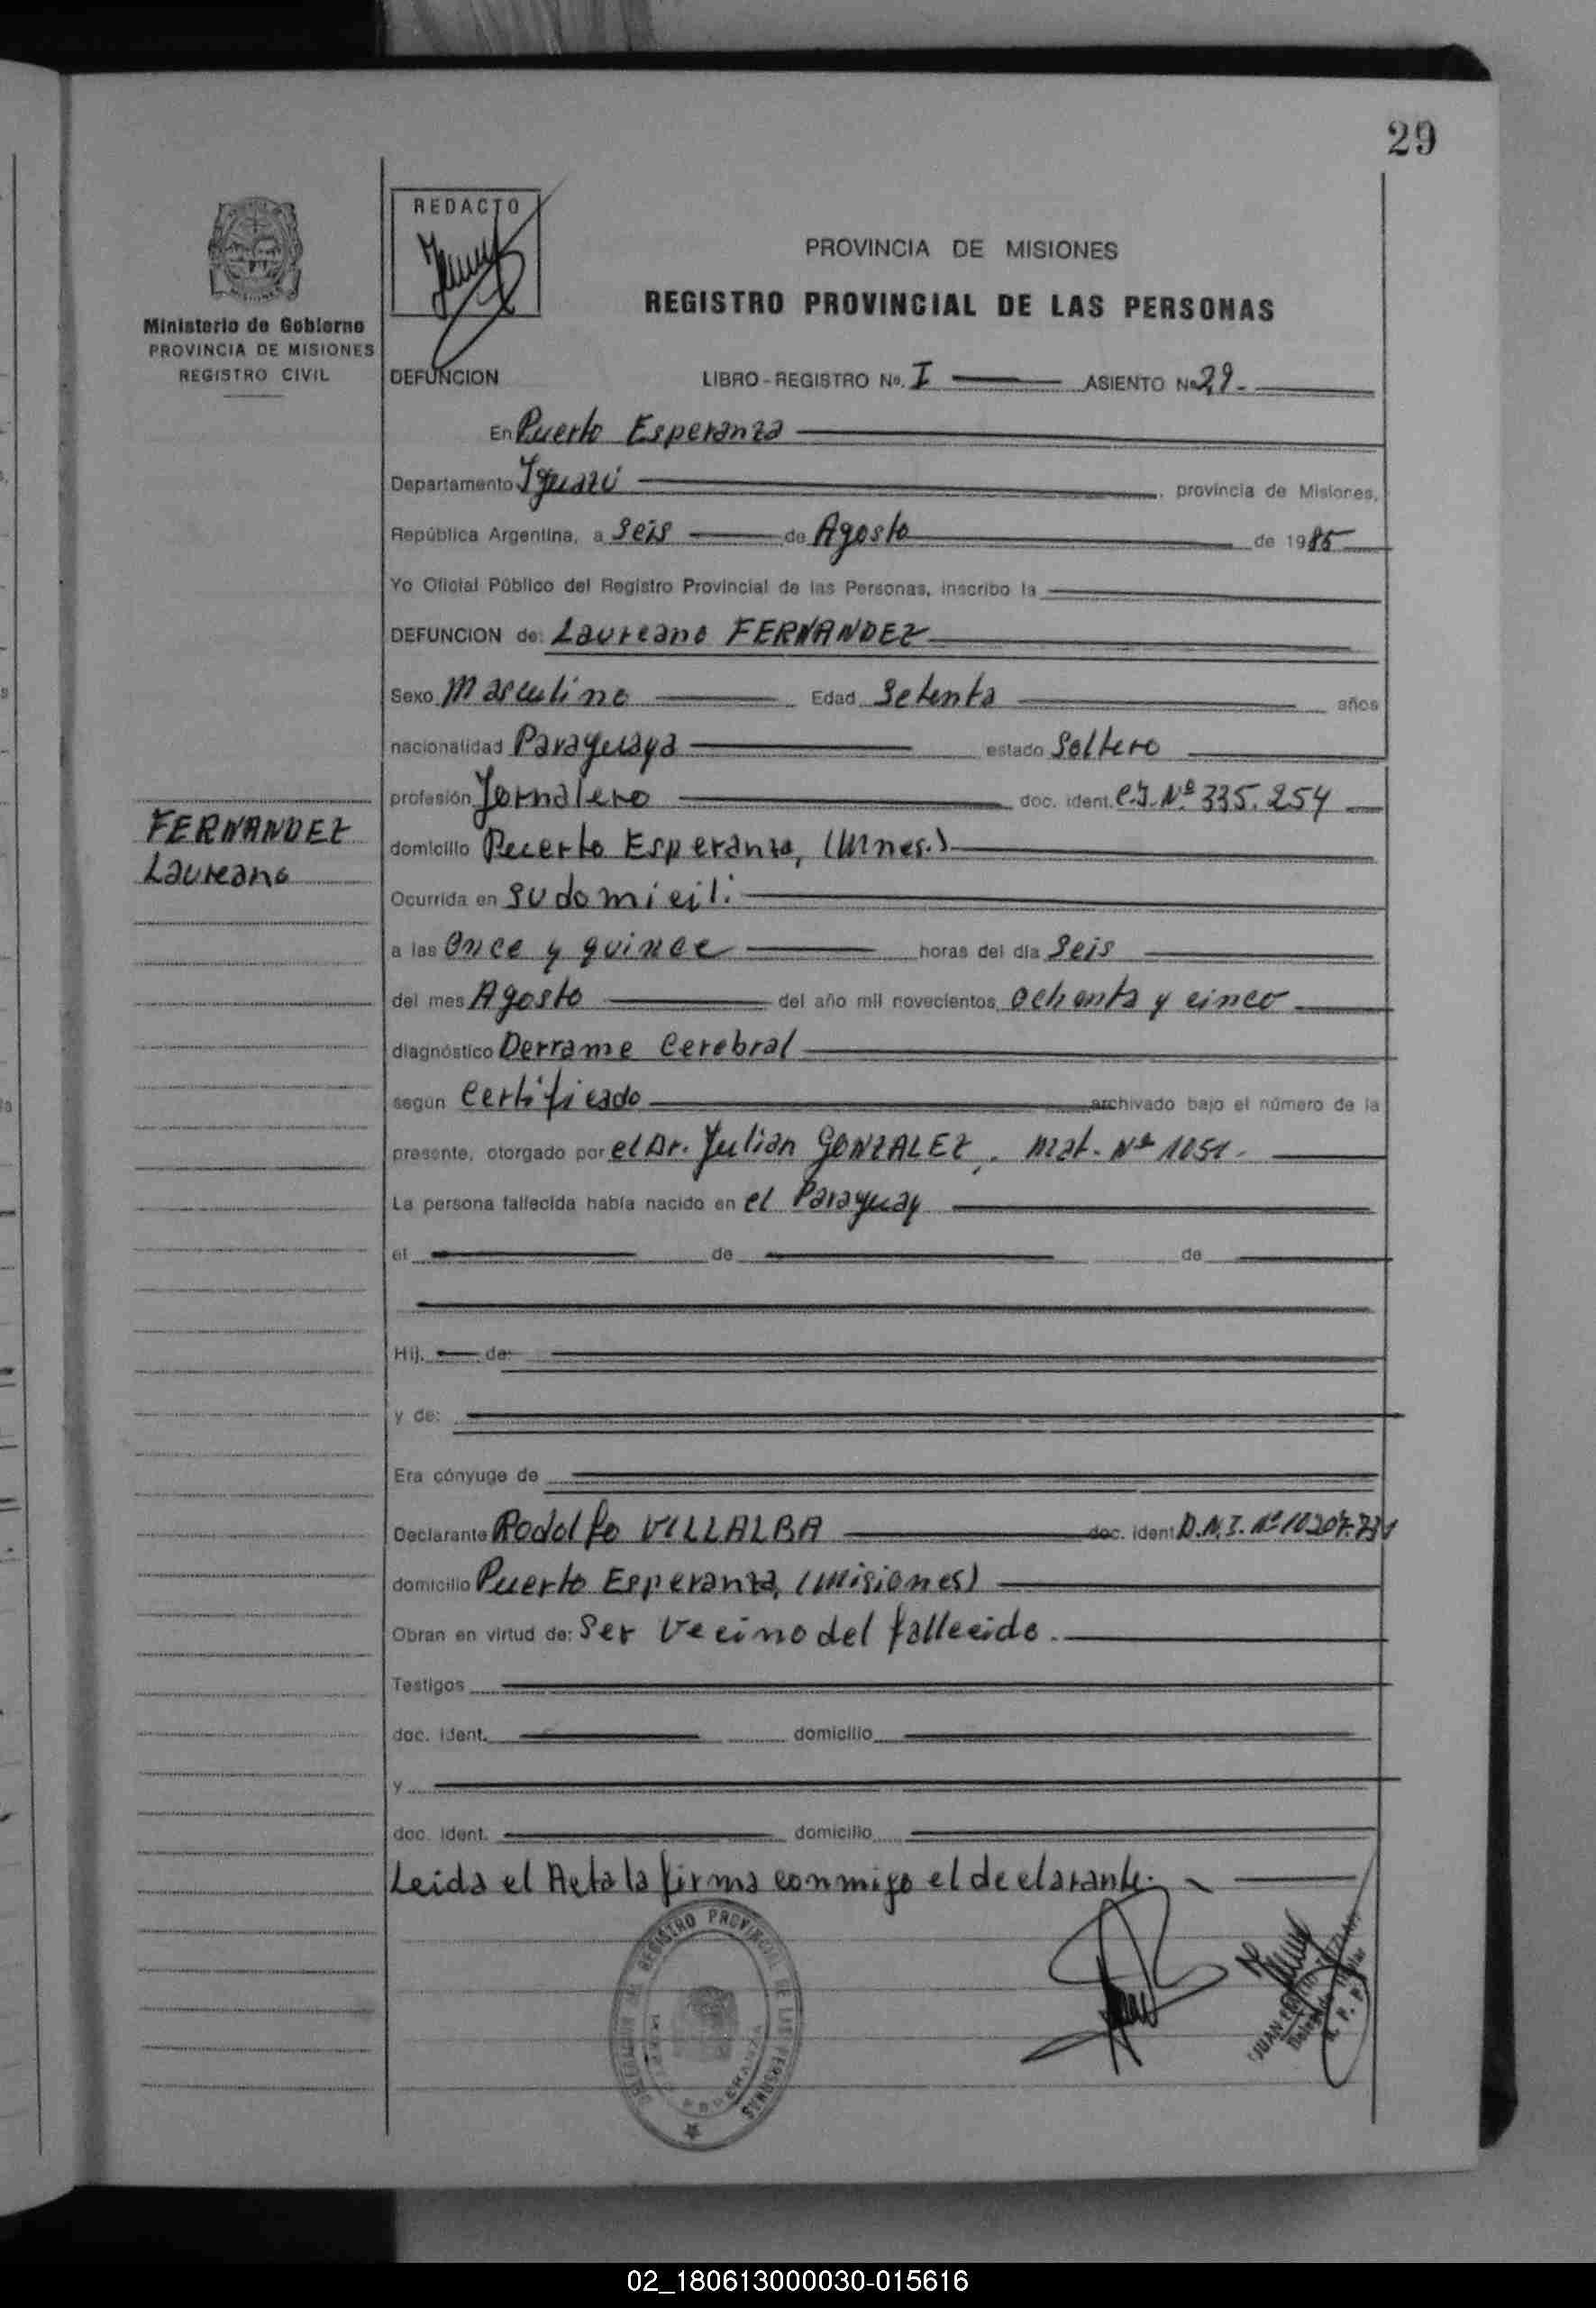 29
REDACTO
PROVINCIA DE MISIONES
REGISTRO PROVINCIAL DE LAS PERSONAS
Ministerio de Gobierno
PROVINCIA DE MISIONES
REGISTRO CIVIL
DEFUNCION LIBRO - REGISTRO No. I ASIENTO No 29.
En Puerto Esperanza
Departamento Iguazú, provincia de Misiones,
República Argentina, a Seis de Agosto de 1985
Yo Oficial Público del Registro Provincial de las Personas, inscribo la
DEFUNCION de: Laureano FERNANDEZ
Sexo Masculino Edad Setenta años
nacionalidad Paraguaya estado Soltero
profesión Jornalero doc. ident. C.I. Nº 335.254
FERNANDEZ
Laureano
domicilio Puerto Esperanza, (Mnes.)
Ocurrida en su domicili
a las Once y quince horas del día Seis
del mes Agosto del año mil novecientos ochenta y cinco
diagnóstico Derrame Cerebral
según Certificado archivado bajo el número de la
presente, otorgado por el Dr. Julian GONZALEZ, Mat. Nº 1051.
La persona fallecida había nacido en el Paraguay
el de de
Hij. de:
y de:
Era cónyuge de
Declarante Rodolfo VILLALBA doc. ident D.N.I. Nº
domicilio Puerto Esperanza, (Misiones)
Obran en virtud de: Ser Vecino del fallecido.
Testigos
doc. ident. domicilio
y
doc. ident. domicilio
Leida el Acta la firma conmigo el declarante.
REGISTRO PROVINCIAL DE LAS PERSONAS
JUAN
02_180613000030-015616